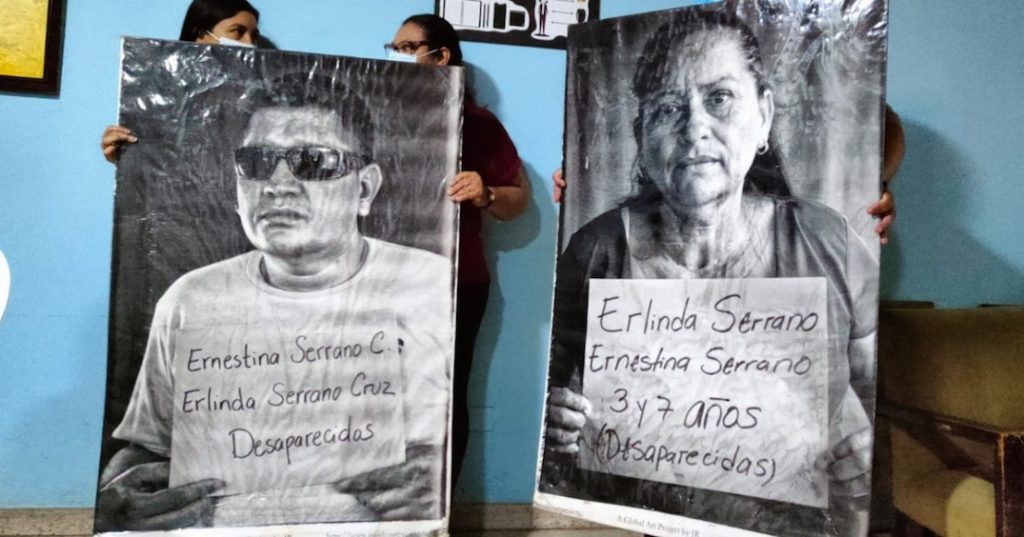 Ernestina Serrano C.
Erlinda Serrano Cruz
Desaparecidas
Erlinda Serrano
Ernestina Serrano
3 y 7 años
(Desaparecidas)
A Global Art Project by JR